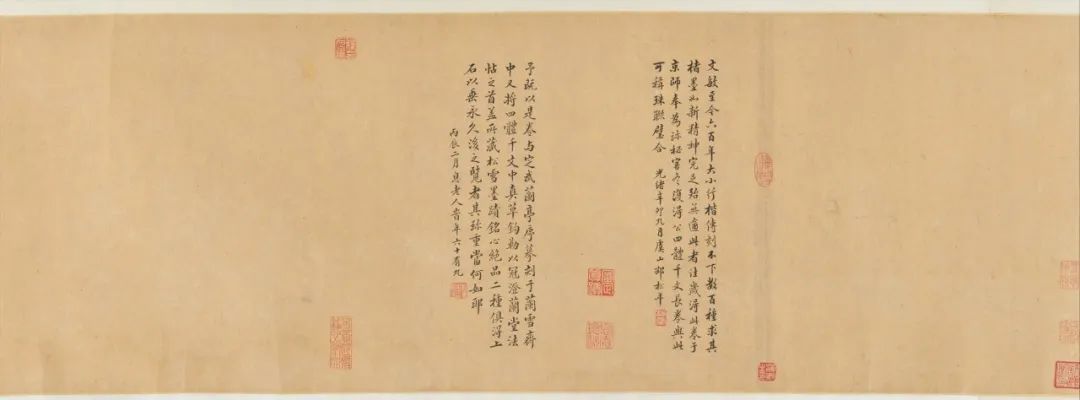 文敏至今六百年大小行楷傳刻不下數百種求其
楮墨如新精神完足殆無逾此者往歲得此卷于
京師奉為詠秘客冬復得公四體千文長卷與此
可稱珠聯璧合 光緒辛卯九月虞山邵松年
予既以是卷与定武蘭亭序摹刻于蘭雪齋
中又將四體千文中真草鈎勒以冠澄蘭堂法
帖之首蓋所藏松雪墨蹟銘心絕品二種俱得上
石以垂永久後之覽者其珎重當何如耶
丙辰二月息老人昔年六十有九